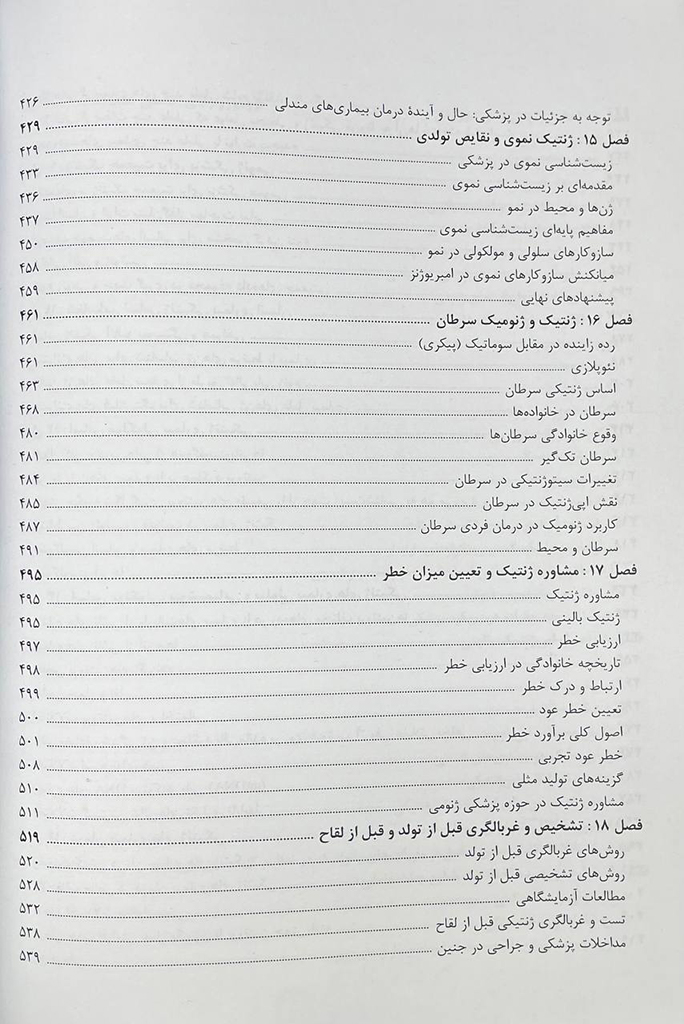 توجه به جزئیات در پزشکی: حال و آیندهٔ درمان بیماری‌های مندلی ........ ۴۲۶
فصل ۱۵: ژنتیک نموی و نقایص تولدی ........ ۴۲۹
زیست‌شناسی نموی در پزشکی ........ ۴۲۹
مقدمه‌ای بر زیست‌شناسی نموی ........ ۴۳۳
ژن‌ها و محیط در نمو ........ ۴۳۶
مفاهیم پایه‌ای زیست‌شناسی نموی ........ ۴۳۷
سازوکارهای سلولی و مولکولی در نمو ........ ۴۵۰
میانکنش سازوکارهای نموی در امبریوژنز ........ ۴۵۸
پیشنهادهای نهایی ........ ۴۵۹
فصل ۱۶: ژنتیک و ژنومیک سرطان ........ ۴۶۱
رده زاینده در مقابل سوماتیک (پیکری) ........ ۴۶۱
نئوپلازی ........ ۴۶۱
اساس ژنتیکی سرطان ........ ۴۶۳
سرطان در خانواده‌ها ........ ۴۶۸
وقوع خانوادگی سرطان‌ها ........ ۴۸۰
سرطان تک‌گیر ........ ۴۸۱
تغییرات سیتوژنتیکی در سرطان ........ ۴۸۴
نقش اپی‌ژنتیک در سرطان ........ ۴۸۵
کاربرد ژنومیک در درمان فردی سرطان ........ ۴۸۷
سرطان و محیط ........ ۴۹۱
فصل ۱۷: مشاوره ژنتیک و تعیین میزان خطر ........ ۴۹۵
مشاوره ژنتیک ........ ۴۹۵
ژنتیک بالینی ........ ۴۹۵
ارزیابی خطر ........ ۴۹۷
تاریخچه خانوادگی در ارزیابی خطر ........ ۴۹۸
ارتباط و درک خطر ........ ۴۹۹
تعیین خطر عود ........ ۵۰۰
اصول کلی برآورد خطر ........ ۵۰۱
خطر عود تجربی ........ ۵۰۸
گزینه‌های تولید مثلی ........ ۵۱۰
مشاوره ژنتیک در حوزه پزشکی ژنومی ........ ۵۱۱
فصل ۱۸: تشخیص و غربالگری قبل از تولد و قبل از لقاح ........ ۵۱۹
روش‌های غربالگری قبل از تولد ........ ۵۲۰
روش‌های تشخیصی قبل از تولد ........ ۵۲۸
مطالعات آزمایشگاهی ........ ۵۳۲
تست و غربالگری ژنتیکی قبل از لقاح ........ ۵۳۸
مداخلات پزشکی و جراحی در جنین ........ ۵۳۹